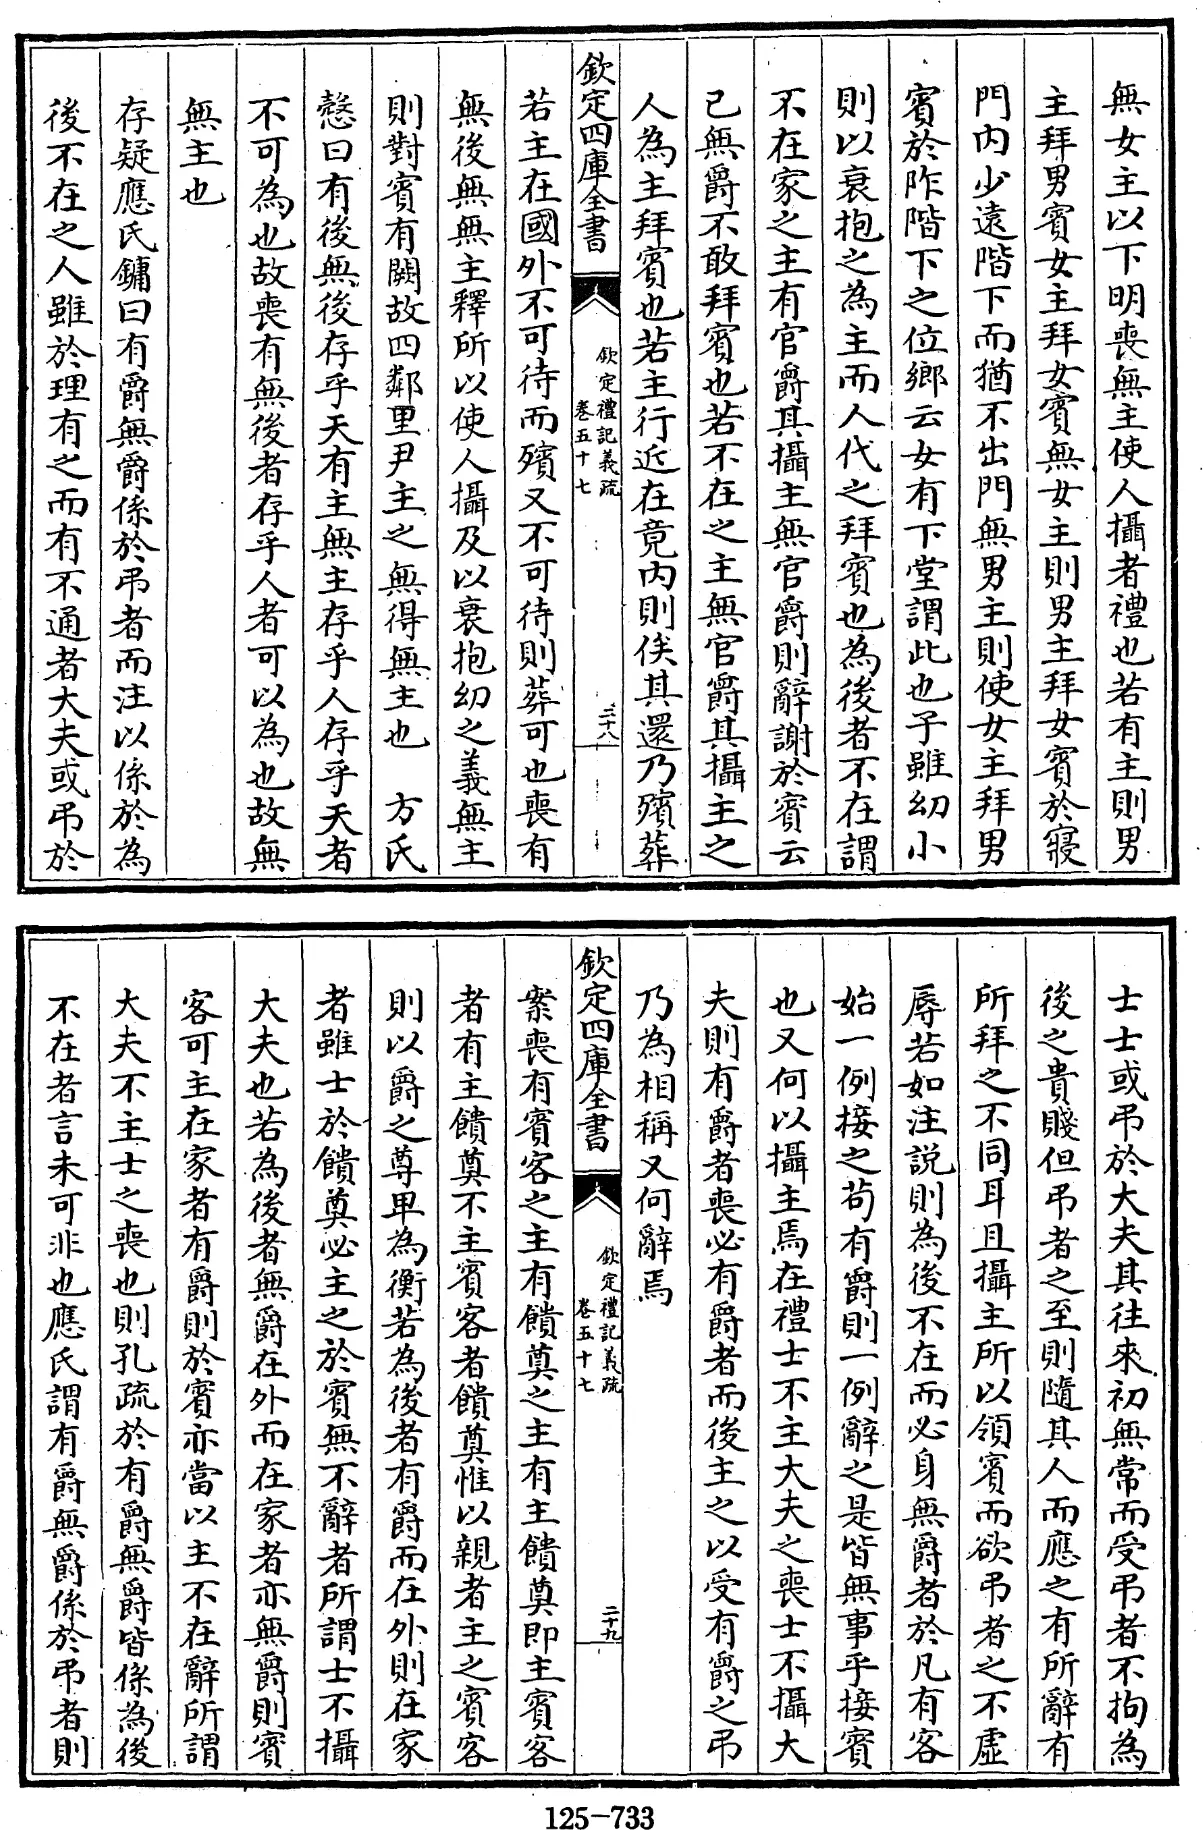 無女主以下明喪無主使人攝者禮也若有主則男
主拜男賓女主拜女賓無女主則男主拜女賓於寢
門内少遠階下而猶不出門無男主則使女主拜男
賓於阼階下之位鄉云女有下堂謂此也子雖幼小
則以衰抱之為主而人代之拜賓也為後者不在謂
不在家之主有官爵其攝主無官爵則辭謝於賓云
已無爵不敢拜賓也若不在之主無官爵其攝主之
人為主拜賓也若主行近在竟内則俟其還乃殯葬
欽定四庫全書
欽定禮記義疏
卷五十七
三十八
若主在國外不可待而殯又不可待則葬可也喪有
無後無無主釋所以使人攝及以衰抱幼之義無主
則對賓有闕故四鄰里尹主之無得無主也　方氏
慤曰有後無後存乎天有主無主存乎人存乎天者
不可為也故喪有無後者存乎人者可以為也故無
無主也
存疑應氏鏞曰有爵無爵係於弔者而注以係於為
後不在之人雖於理有之而有不通者大夫或弔於
士士或弔於大夫其往來初無常而受弔者不拘為
後之貴賤但弔者之至則隨其人而應之有所辭有
所拜之不同耳且攝主所以領賓而欲弔者之不虛
辱若如注説則為後不在而必身無爵者於凡有客
始一例接之苟有爵則一例辭之是皆無事乎接賓
也又何以攝主焉在禮士不主大夫之喪士不攝大
夫則有爵者喪必有爵者而後主之以受有爵之弔
乃為相稱又何辭焉
欽定四庫全書
欽定禮記義疏
卷五十七
三十九
案喪有賓客之主有饋奠之主有主饋奠即主賓客
者有主饋奠不主賓客者饋奠惟以親者主之賓客
則以爵之尊卑為衡若為後者有爵而在外則在家
者雖士於饋奠必主之於賓無不辭者所謂士不攝
大夫也若為後者無爵在外而在家者亦無爵則賓
客可主在家者有爵則於賓亦當以主不在辭所謂
大夫不主士之喪也則孔疏於有爵無爵皆係為後
不在者言未可非也應氏謂有爵無爵係於弔者則
125-733